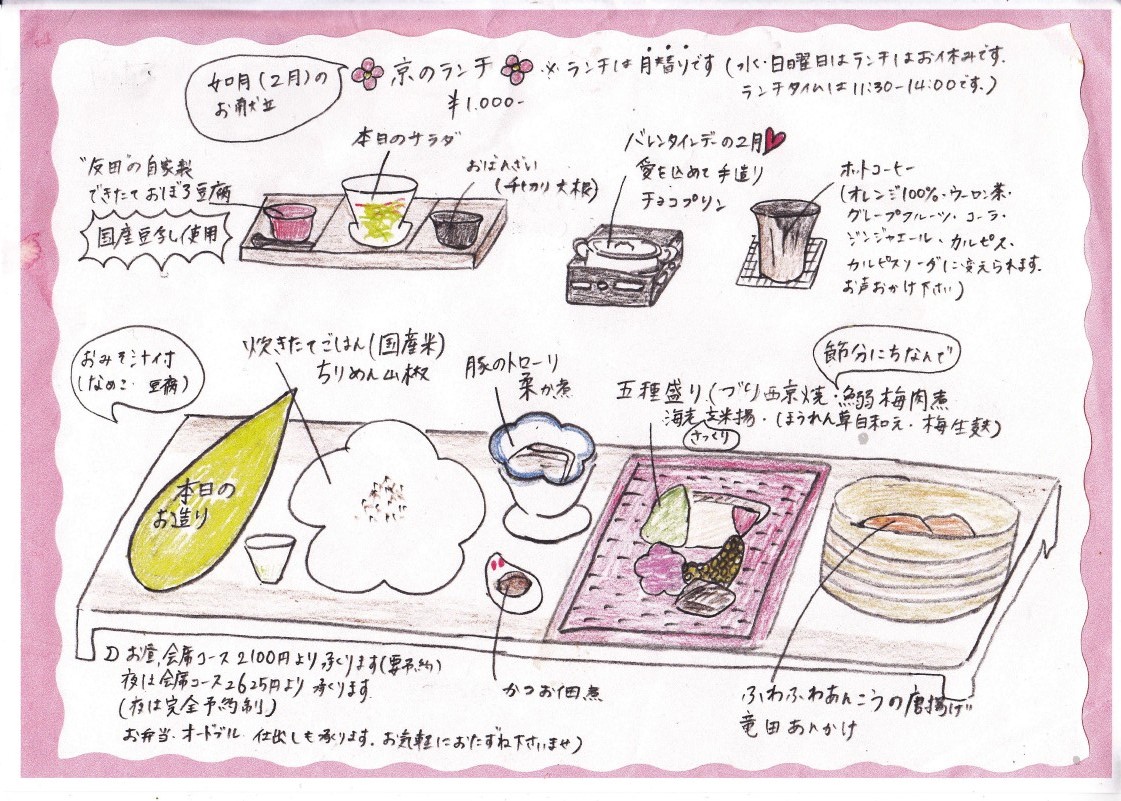 如月(2月)の
お献立
京のランチ
¥1.000-
※ランチは月替りです(水・日曜日はランチはお休みです。
ランチタイムは11:30-14:00です。)
本日のサラダ
"友田"の自家製
できたておぼろ豆腐
国産豆乳使用
おばんざい
(千切り大根)
バレンタインデーの2月
愛を込めて手造り
チョコプリン
ホットコーヒー
(オレンジ100%・ウーロン茶・
グレープフルーツ・コーラ・
ジンジャエール、カルピス、
カルピスソーダに変えられます。
お声おかけ下さい)
おみそ汁付
(なめこ・豆腐)
炊きたてごはん(国産米)
ちりめん山椒
豚のトローリ
柔か煮
節分にちなんで
五種盛り(ぶり西京焼・鰯梅肉煮
海老玄米揚・ほうれん草白和え・梅生麩)
さっくり
本日の
お造り
お昼、会席コース2100円より承ります(要予約)
夜は会席コース2625円より承ります。
(夜は完全予約制)
お弁当・オードブル 仕出しも承ります。お気軽におたずね下さいませ)
かつお佃煮
ふわふわあんこうの唐揚げ
竜田あんかけ